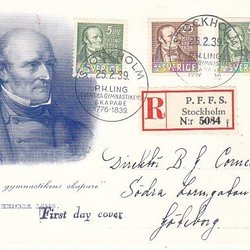 STOCKHOLM
25.2.39.
P.H. LING
SVENSKA GYMNASTIKENS
SKAPARE
1776-1839.
5 ÖRE
SVERIGE
STOCKHOLM
25.2.39.
P.H. LING
GYMNASTIKENS
SKAPARE
1776-1839
SVERIGE
R
P. F. F. S.
Stockholm
N:r 5084 f
gymnastikens skapare"
First day cover
Direktör B. J.
Södra
Göteborg.